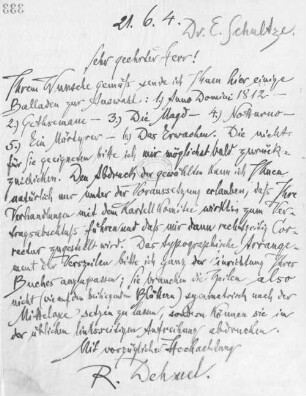 333
21. 6. 4.
Dr. E. Schultze.
Sehr geehrter Herr!
Ihrem Wunsche gemäß sende ich Ihnen hier einige
Balladen zur Auswahl: 1) Anno Domini 1812 —
2) Gethsemane — 3.) Die Magd — 4.) Notturno —
5.) Ein Märtyrer — 6.) Das Erwachen. Die nicht
für Sie geeigneten bitte ich mir möglichst bald zurück-
zuschicken. Den Abdruck der gewählten kann ich Ihnen
natürlich nur unter der Voraussetzung erlauben, daß Ihre
Verhandlungen mit dem Kartell-Komitee wirklich zum Ver-
tragsabschluß führen und daß mir dann rechtzeitig Cor-
rectur zugestellt wird. Das typographische Arrange-
ment der Verszeilen bitte ich ganz der Einrichtung Ihres
Buches anzupassen; Sie brauchen die Zeilen also
nicht (wie auf den Blättern) symmetrisch nach der
Mittelaxe setzen zu lassen, sondern können sie in
der üblichen linksseitigen Aufreihung abdrucken.
Mit vorzüglicher Hochachtung
R. Dehmel.